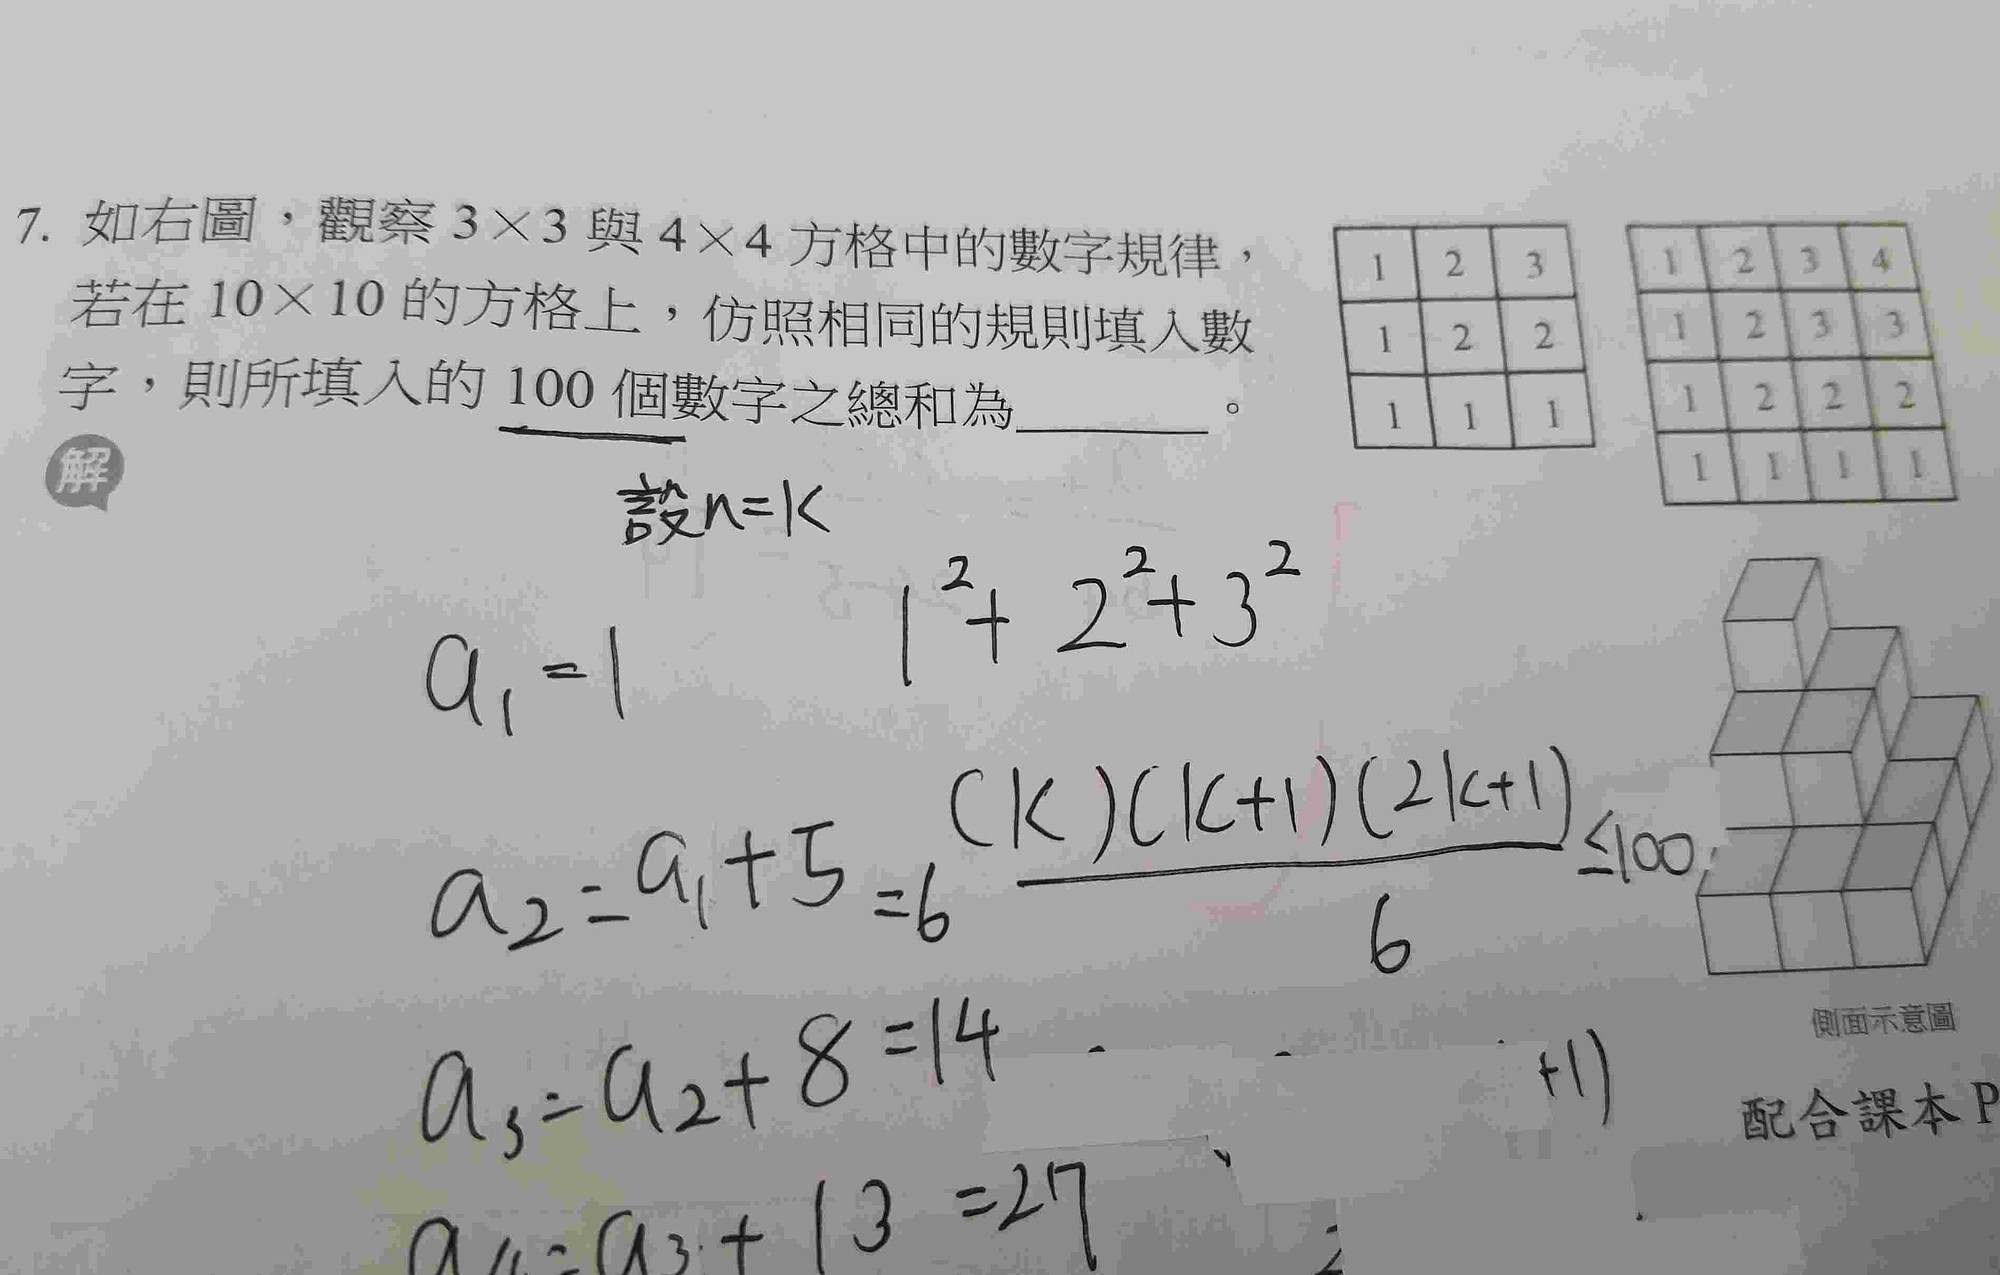 7. 如右圖，觀察 3×3 與 4×4 方格中的數字規律，
若在 10×10 的方格上，仿照相同的規則填入數
字，則所填入的 100 個數字之總和為______。
解
1 2 3
1 2 2
1 1 1
1 2 3 4
1 2 3 3
1 2 2 2
1 1 1 1
設n=k
a₁=1
1²+2²+3²
a₂=a₁+5=6
(k)(k+1)(2k+1)/6 ≤100
a₃=a₂+8=14
+1)
a₄=a₃+13=27
側面示意圖
配合課本 P